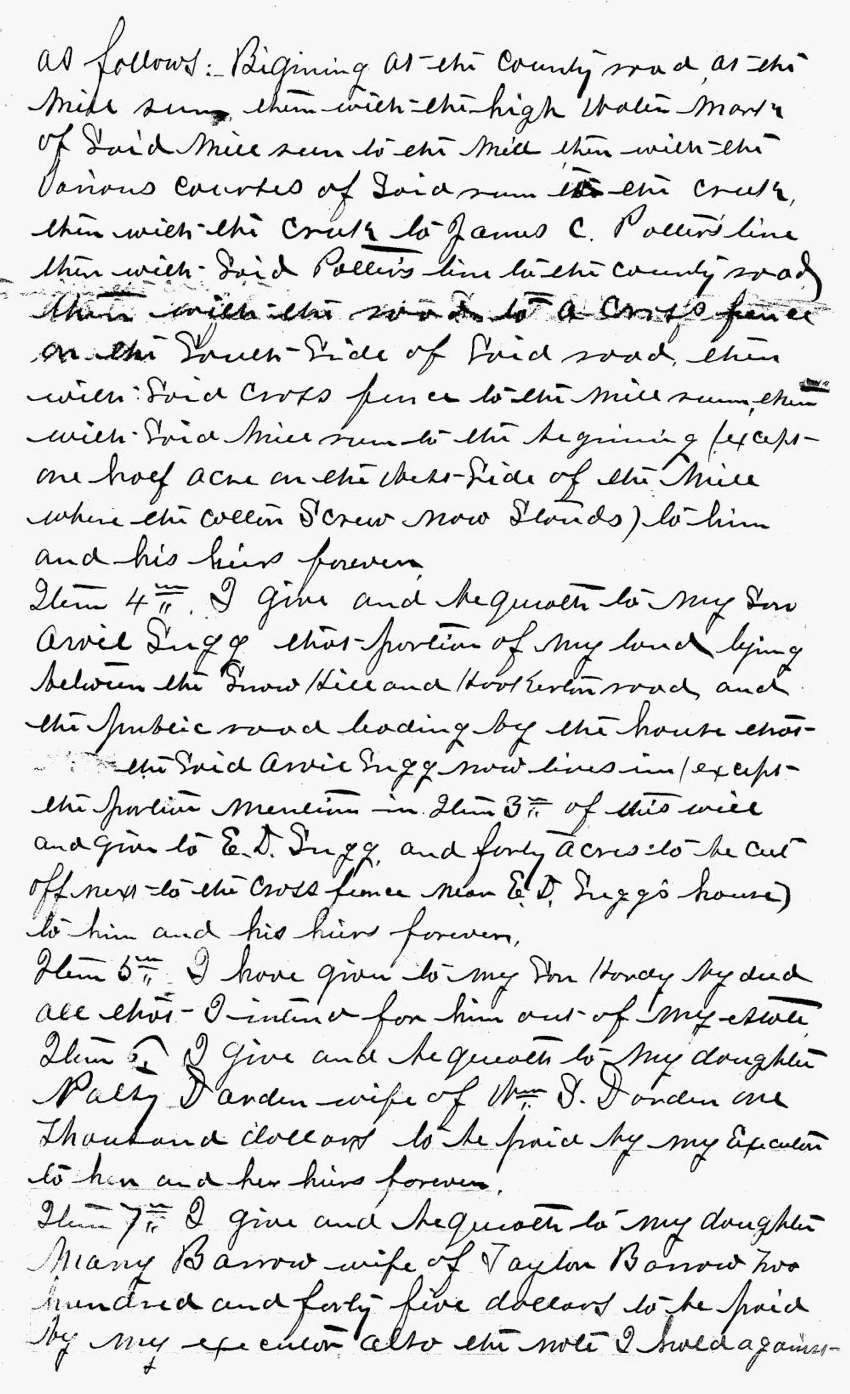 as follows: Bigining at the county road, at the
Mill run, then with the high water mark
of Said Mill run to the Mill then with the
Various courses of Said run to the creek,
then with the creek to James C. Potter's line
then with Said Potter's line to the county road
then with the road to a cross fence
on the South Side of Said road, then
with Said cross fence to the Mill run, then
with Said Mill run to the begining (except
one half acre on the West Side of the Mill
where the cotton Screw now Stands) to him
and his heirs forever.
Item 4th. I give and bequeath to my Son
Arvil Sugg that portion of my land lying
between the Snow Hill and Hookerton road, and
the public road leading by the house that
the Said Arvil Sugg now lives in (except
the portion mention in Item 3rd of this will
and give to E. D. Sugg, and forty acres to be cut
off next to the cross fence near E. D. Sugg's house)
to him and his heirs forever.
Item 5th I have given to my Son Hardy by deed
all that I intend for him out of my estate.
Item 6. I give and bequeath to my daughter
Patty Darden wife of Wm S. Darden one
Thousand dollars to be paid by my Executor
to her and her heirs forever.
Item 7th I give and bequeath to my daughter
Mary Barrow wife of Taylor Barrow two
hundred and forty five dollars to be paid
by my executor, also the note I hold against